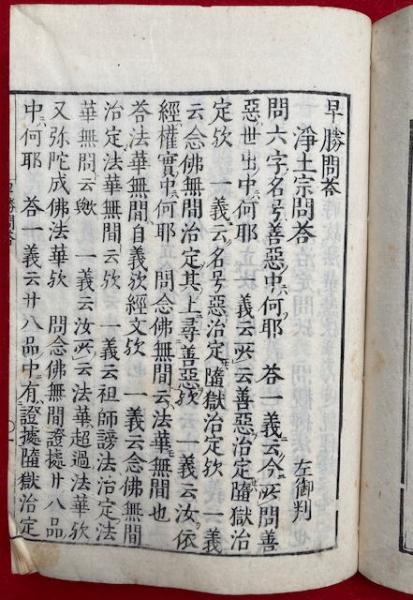 早勝問答
淨土宗問答 左御判
問六字名号善惡中何耶 答一義云今所問善
惡世出中何耶 一義云所云善惡治定墮獄治
定欤 一義云名号惡治定墮獄治定欤 一義
云念佛無間治定其上尋善惡欤 一義云汝依
經權實中何耶 問念佛無間云法華無間也
答法華無間自義欤經文欤 一義云念佛無間
治定法華無間云欤 一義云祖師謗法治定法
華無間云欤 一義云汝所云法華超過法華欤
又弥陀成佛法華欤 問念佛無間證據廿八品
中何耶 答一義云廿八品中有證據墮獄治定